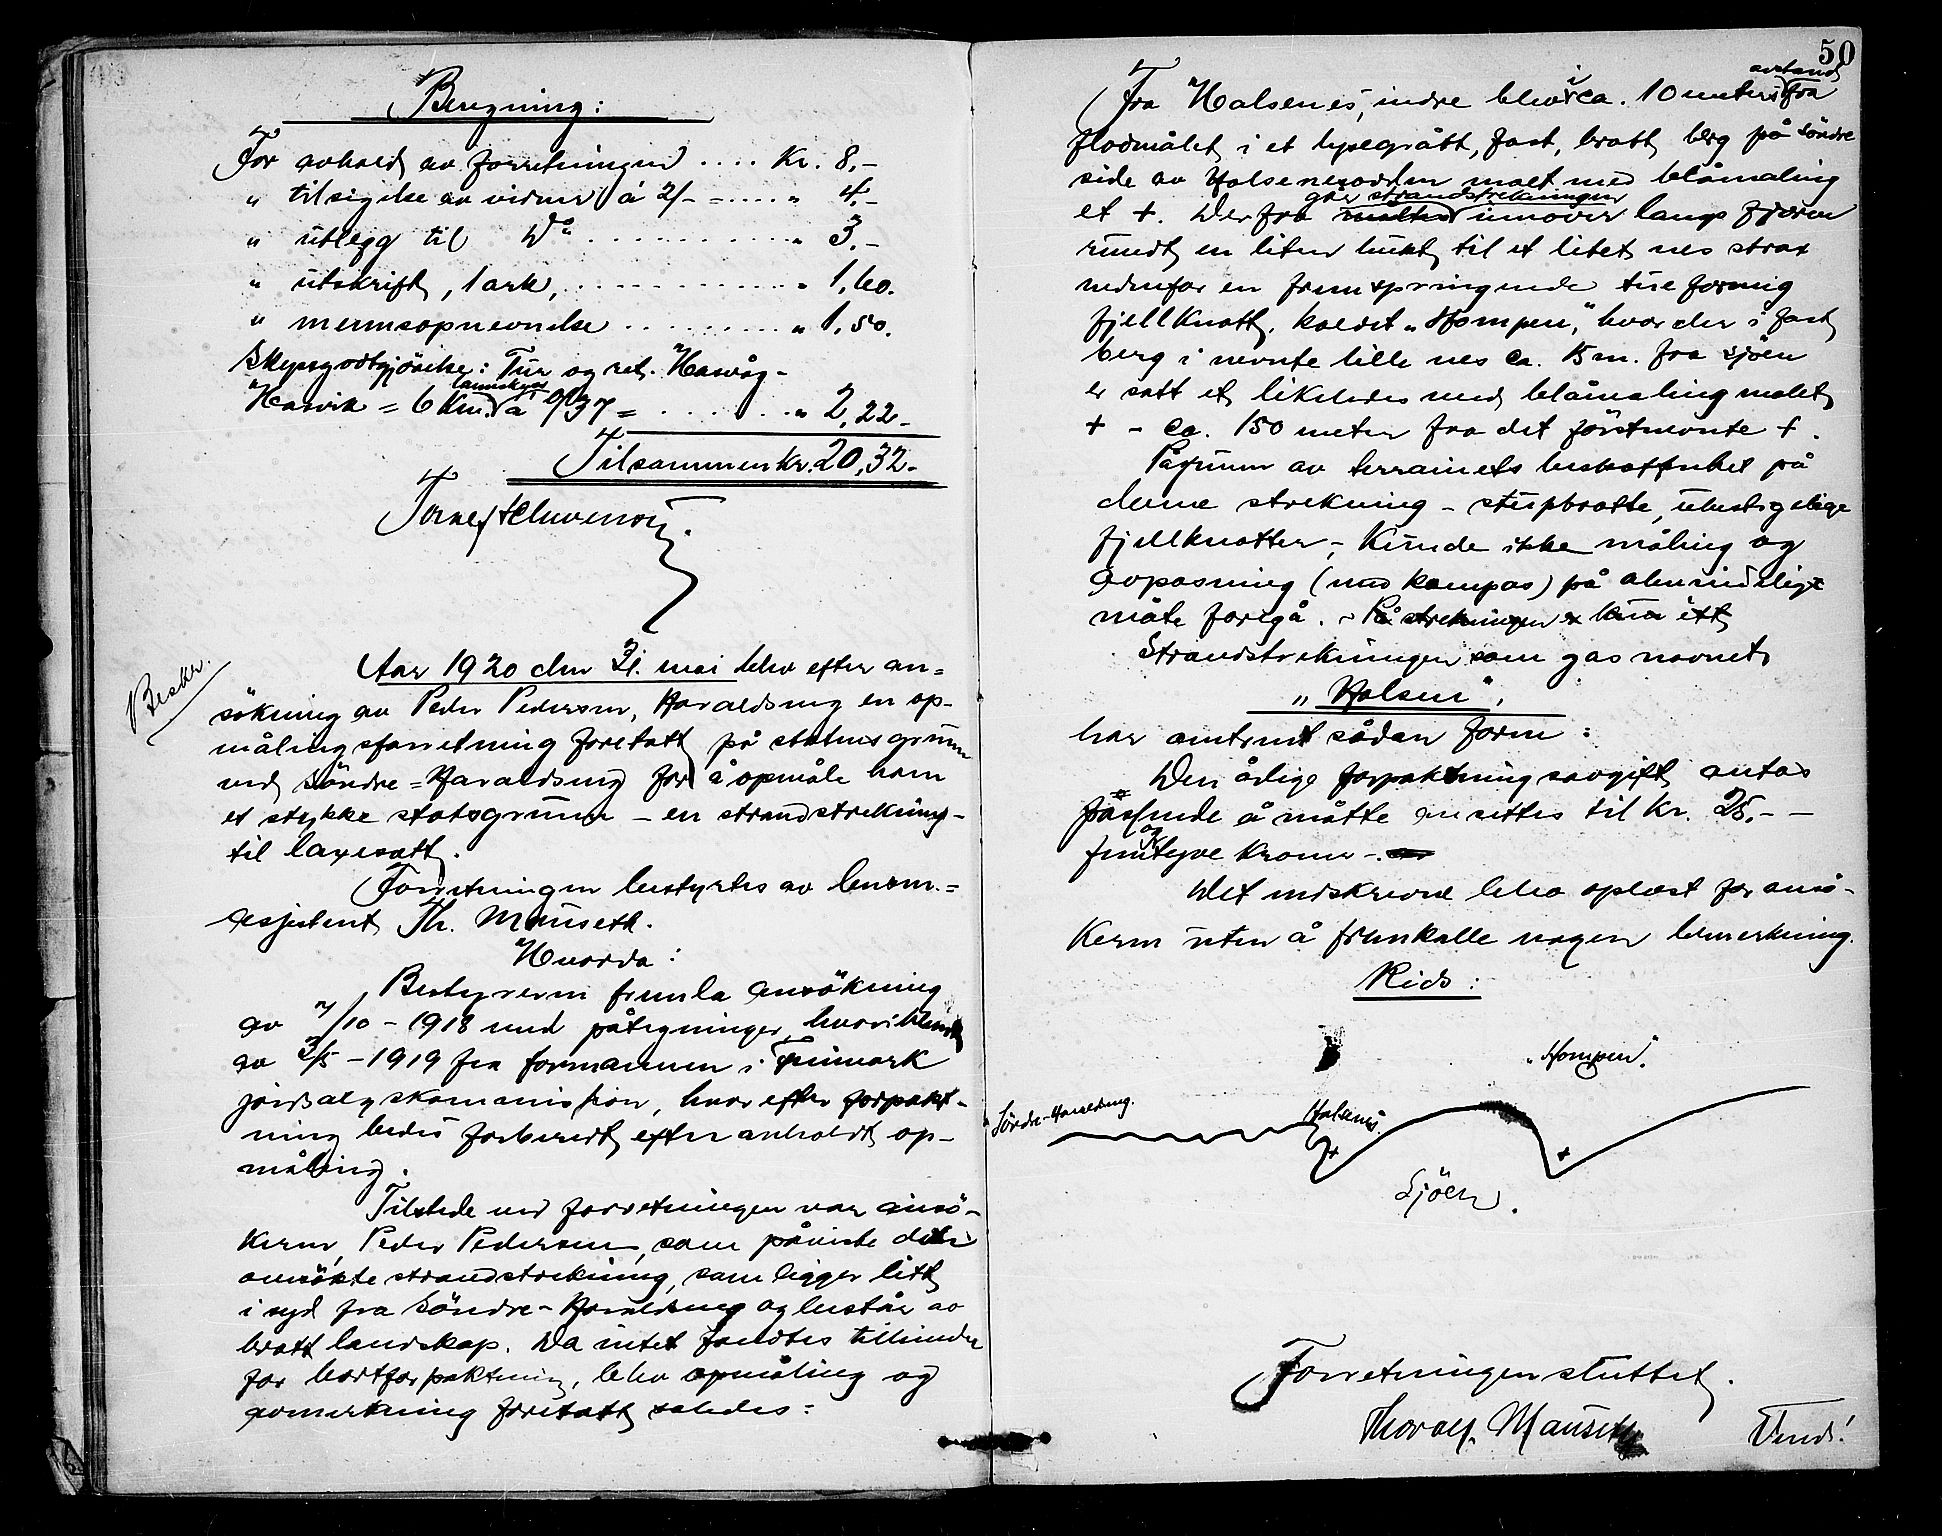 Beregning:
For avhold av forretningen .... Kr. 8,-
" tilsigelse av vidner á 2/- = .... " 4,-
" utlegg til Do .......... " 3,-
" utskrift, 1 ark, .......... " 1,60.
" mennsopnevnelse ........ " 1,50.
Skyssgodtgjörelse: Tur og ret. Hasvåg -
landskyss
Hasvik = 6 Km. á 0/37 = ...... " 2,22-
Tilsammen Kr. 20,32-
Beskr.
Aar 1920 den 31. mai blev efter an=
sökning av Peder Pedersen, Haraldseng en op-
målingsforretning foretatt på statens grunn
ved Söndre=Haraldseng for å opmåle ham
et stykke statsgrunn - en strandstrekning -
til laxesatt.
Forretningen bestyrtes av lensm.=
assistent Th. Mauseth.
Hvorda:
Bestyreren fremla ansökning
av 7/10 - 1918 med påtegninger, hvoriblandt
av 3/5 - 1919 fra formannen i Finmark
jordsalgskommission, hvorefter forpakt-
ning bedes forberedt efter avholdt op-
måling.
Tilstede ved forretningen var ansö-
keren, Peder Pedersen, som påviste den
ansökte strandstrekning, som ligger litt
i syd fra Söndre-Haraldseng og består av
bratt landskap. Da intet fandtes tilhinder
for bortforpaktning, blev opmåling og
avmerkning foretatt således:
50
avstand
Fra "Halsenes", indre blev i ca. 10 meters fra
flodmålet i et lysegrått, fast, bratt berg på söndre
side av Halsenesodden malt med blåmaling
går strandstrekningen
et +. Derfra innover langs fjæren
rundt en liten bukt til et litet nes strax
nedenfor en fremspringende tueformig
fjellknatt, kaldet "Hompen", hvor der i fast
berg i nevnte lille nes ca. 15 m. fra sjöen
er satt et likeledes med blåmaling malet
+ - ca. 150 meter fra det förstnevnte +.
På grunn av terrainets beskaffenhet på
denne strekning - stupbratte, ubestigelige
fjellknatter -, kunde ikke måling og
avpasning (med kompas) på almindelige
måte foregå. - På strekningen er kun ett
Strandstrekningen som gas navnet
"Halsen",
har omtrent sådan form:
Den årlige forpaktningsavgift antas
passende å måtte ansettes til Kr. 25.- -
og
femtyve kroner -.
Det nedskrevne blev oplæst for ansö-
keren uten å fremkalle nogen bemerkning.
Rids:
"Hompen".
Söndre-Haraldseng.
Halsenes.
Sjöen.
Forretningen sluttet.
Thoralf Mauseth
Vend!